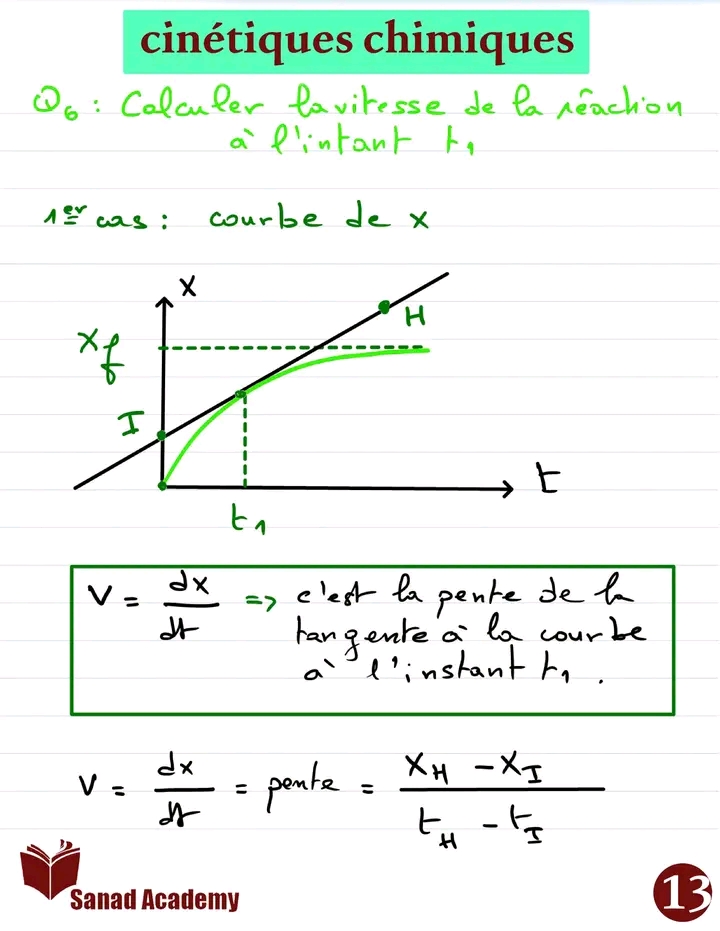 cinétiques chimiques
Q6 : Calculer la vitesse de la réaction
à l'intant t1
1er cas : courbe de x
x
H
xf
I
t
t1
V = dx/dt => c'est la pente de la
tangente à la courbe
à l'instant t1 .
V = dx/dt = pente = (xH - xI)/(tH - tI)
Sanad Academy
13